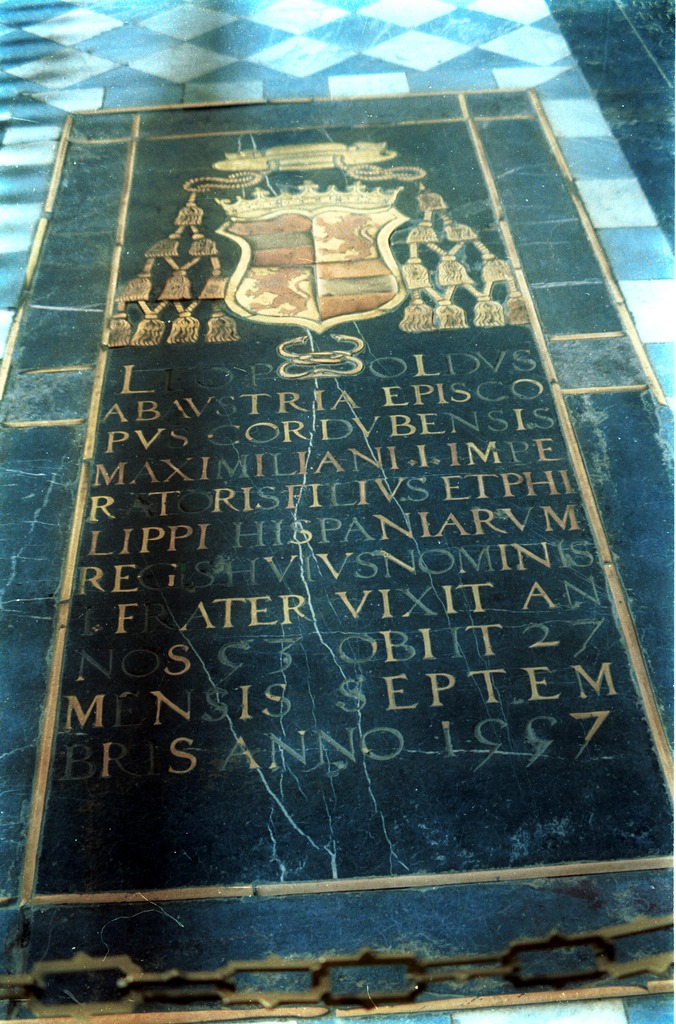 LEOPOLDVS
AB AVSTRIA EPISCO
PVS CORDVBENSIS
MAXIMILIANI.I.IMPE
RATORIS FILIVS ET PHI
LIPPI HISPANIARVM
REGIS HVIVS NOMINIS
I. FRATER VIXIT AN
NOS 53 OBIIT 27
MENSIS SEPTEM
BRIS ANNO 1557